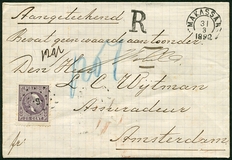 Aangeteekend
R
MAKASSAR
31
3
1882
Bevat geen waarde aan toonder
Den Heer
L. C. Wijtman
Assuradeur
Amsterdam
fr.